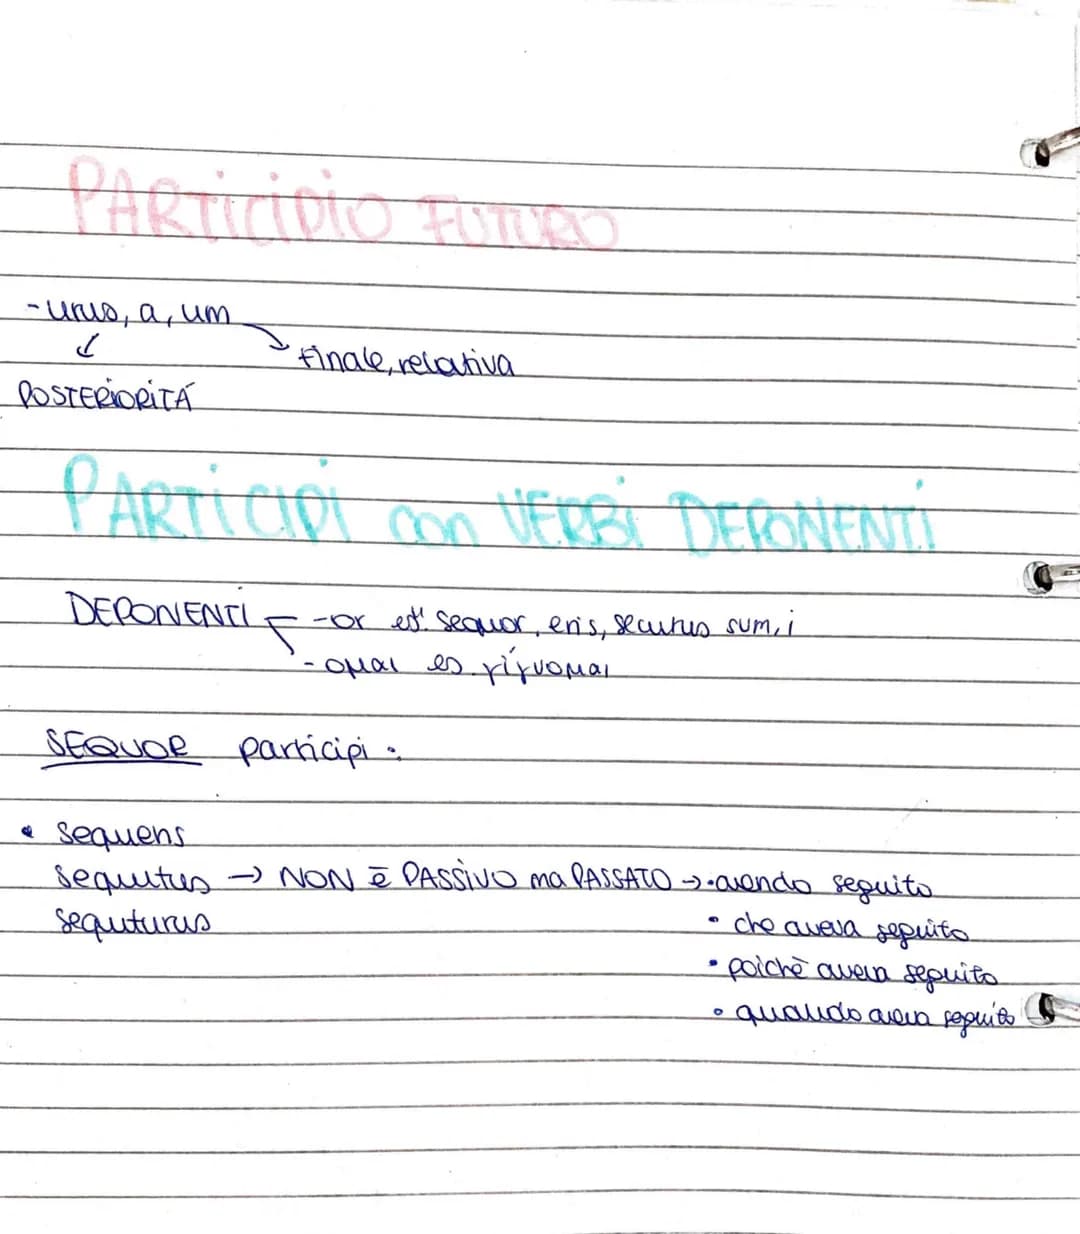 PARTICIPIO FUTURO
-urus, a, um
↓ ↘ finale, relativa
POSTERIORITÁ
PARTICIPI con VERBI DEPONENTI
DEPONENTI -or es. sequor, eris, secutus sum, i
-ομαι es. γίγνομαι
SEQUOR participi:
• sequens
sequutus → NON È PASSIVO ma PASSATO → • avendo seguito
sequturus • che aveva seguito
• poichè aveva seguito
• quando aveva seguito